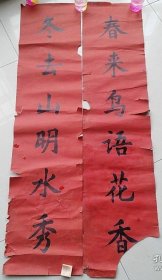 春来鸟语花香
冬去山明水秀